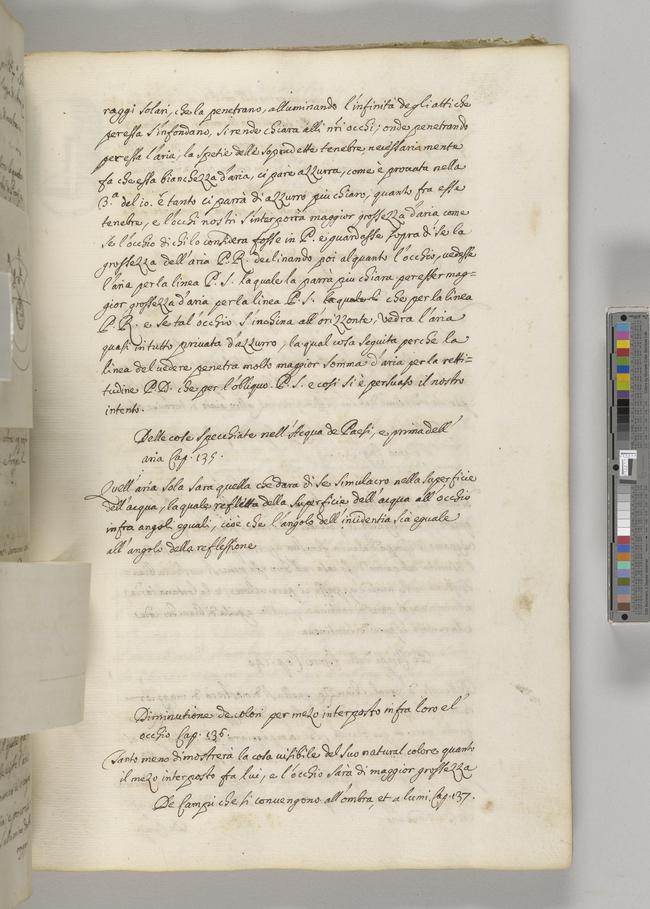 raggi solari, che la penetrano, alluminando l'infinità degli atti che
per essa s'infondano, si rende chiara alli nri occhi; onde penetrando
per essa l'aria, la spetie delle sopradette tenebre necessariamente
fa che essa bianchezza d'aria, ci pare azzurra, come è provata nella
3.ª del 10. è tanto ci parrà di azzurro più chiaro, quanto fra esse
tenebre, e l'occhi nostri s'interporrà maggior grossezza d'aria come
se l'occhio di chi lo considera fosse in P. e guardasse sopra di se la
grossezza dell'aria P.R. declinando poi alquanto l'occhio, vedesse
l'aria per la linea P.S. la quale la parrà più chiara per esser mag=
gior grossezza d'aria per la linea P.S. che per la linea
P.R. e se tal' occhio s'inchina all'orizzonte, vedrà l'aria
quasi in tutto privata d'azzurro, la qual cosa seguita perche la
linea del vedere penetra molto maggior somma d'aria per la retti=
tudine P.D. che per l'obliquo. P.S. e così si è persuaso il nostro
intento.
Delle cose specchiate nell'Acqua de Paesi, e prima dell'
aria Cap. 135.
Quell'aria sola sarà quella che darà di se simulacro nella superficie
dell'acqua, la quale refletta della superficie dell'acqua all'occhio
infra angoli eguali, cioè che l'angolo dell'incidentia sia eguale
all'angolo della reflessione
Diminutione de colori per mezo interposto infra loro el'
occhio Cap. 136.
Tanto meno dimostrerà la cosa visibile del suo natural colore quanto
il mezo interposto fra lui, e l'occhio sarà di maggior grossezza
De Campi che si convengono all'ombra, et a lumi. Cap. 137.